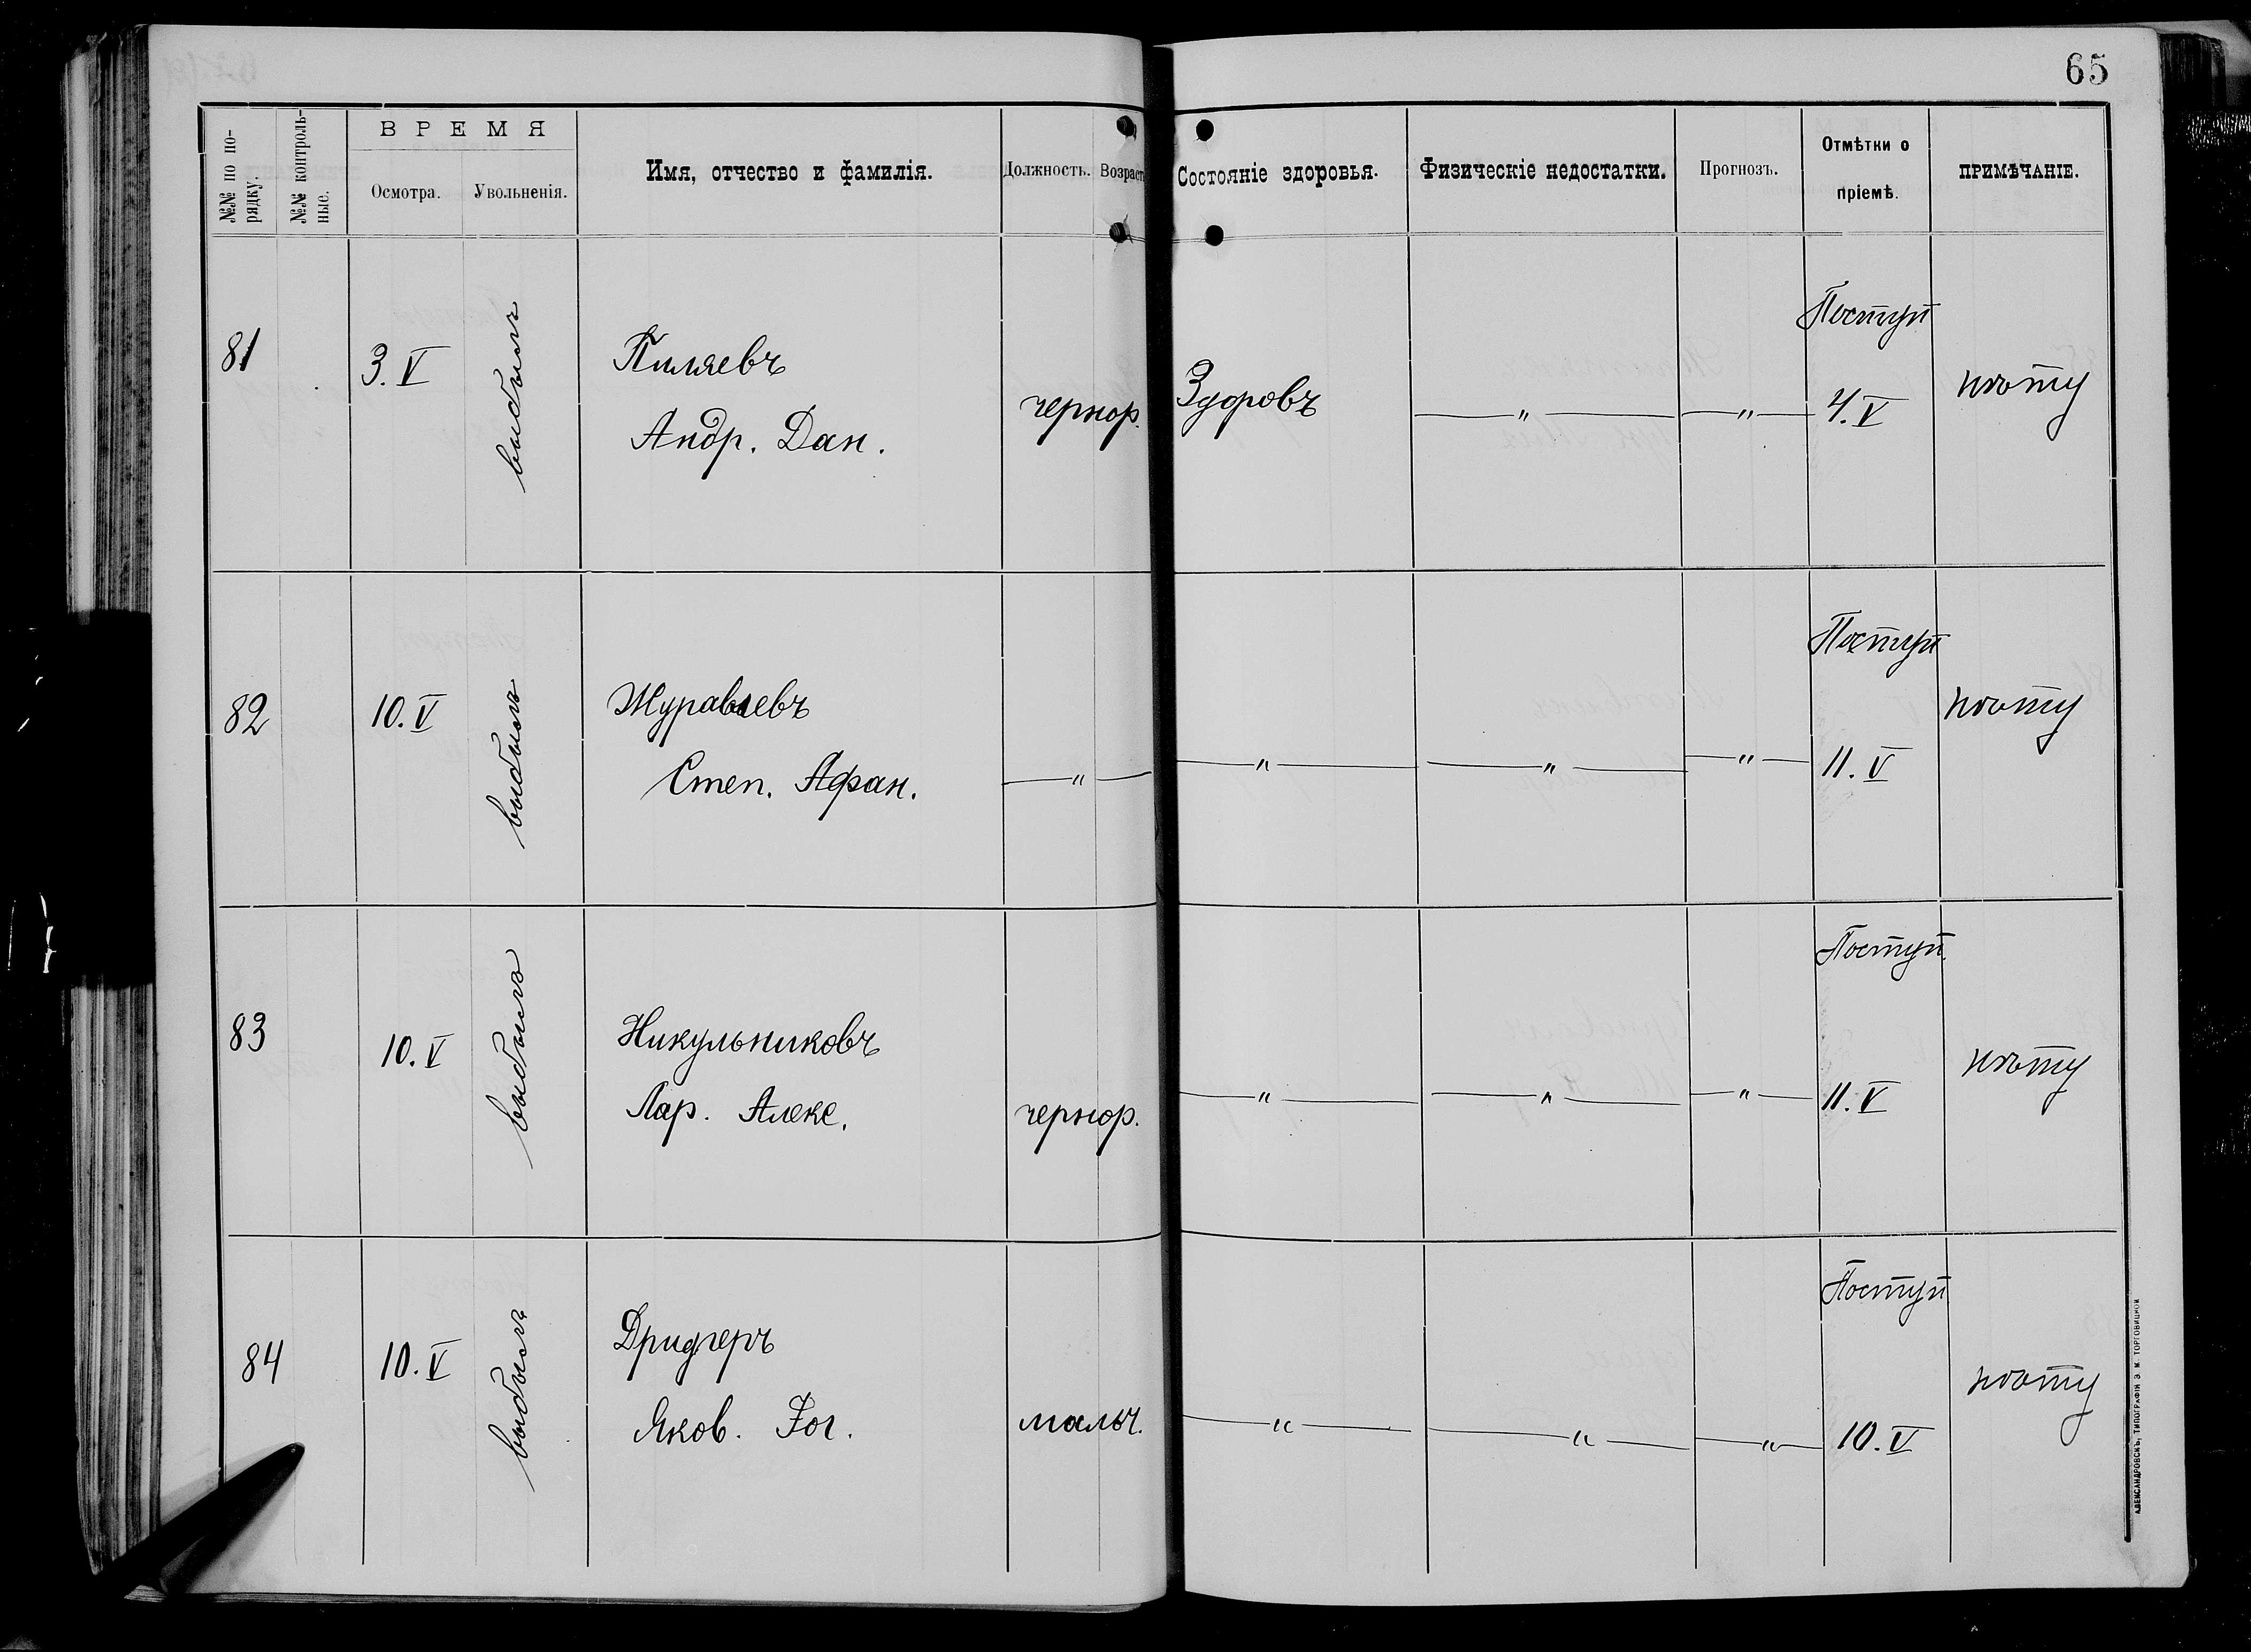 65
№№ по по-
рядку.
№№ контроль-
ные.
ВРЕМЯ
Осмотра.
Увольненія.
Имя, отчество и фамилія.
Должность.
Возрастъ
Состояніе здоровья.
Физическіе недостатки.
Прогнозъ.
Отмѣтки о
пріемѣ.
ПРИМѢЧАНІЕ.
81
3. V
выбылъ
Пиляевъ
Андр. Дан.
чернор.
Здоровъ
— " —
— " —
Поступ
4. V
82
10. V
выбылъ
Журавлевъ
Степ. Афан.
— " —
— " —
— " —
— " —
Поступ
11. V
83
10. V
выбылъ
Никульниковъ
Лар. Алекс.
чернор.
— " —
— " —
— " —
Поступ.
11. V
84
10. V
выбылъ
Дридгеръ
Яков. Іог.
мальч.
— " —
— " —
— " —
Поступ
10. V
АЛЕКСАНДРОВСКЪ, ТИПОГРАФІЯ Э. М. ТОРГОВИЦКОЙ